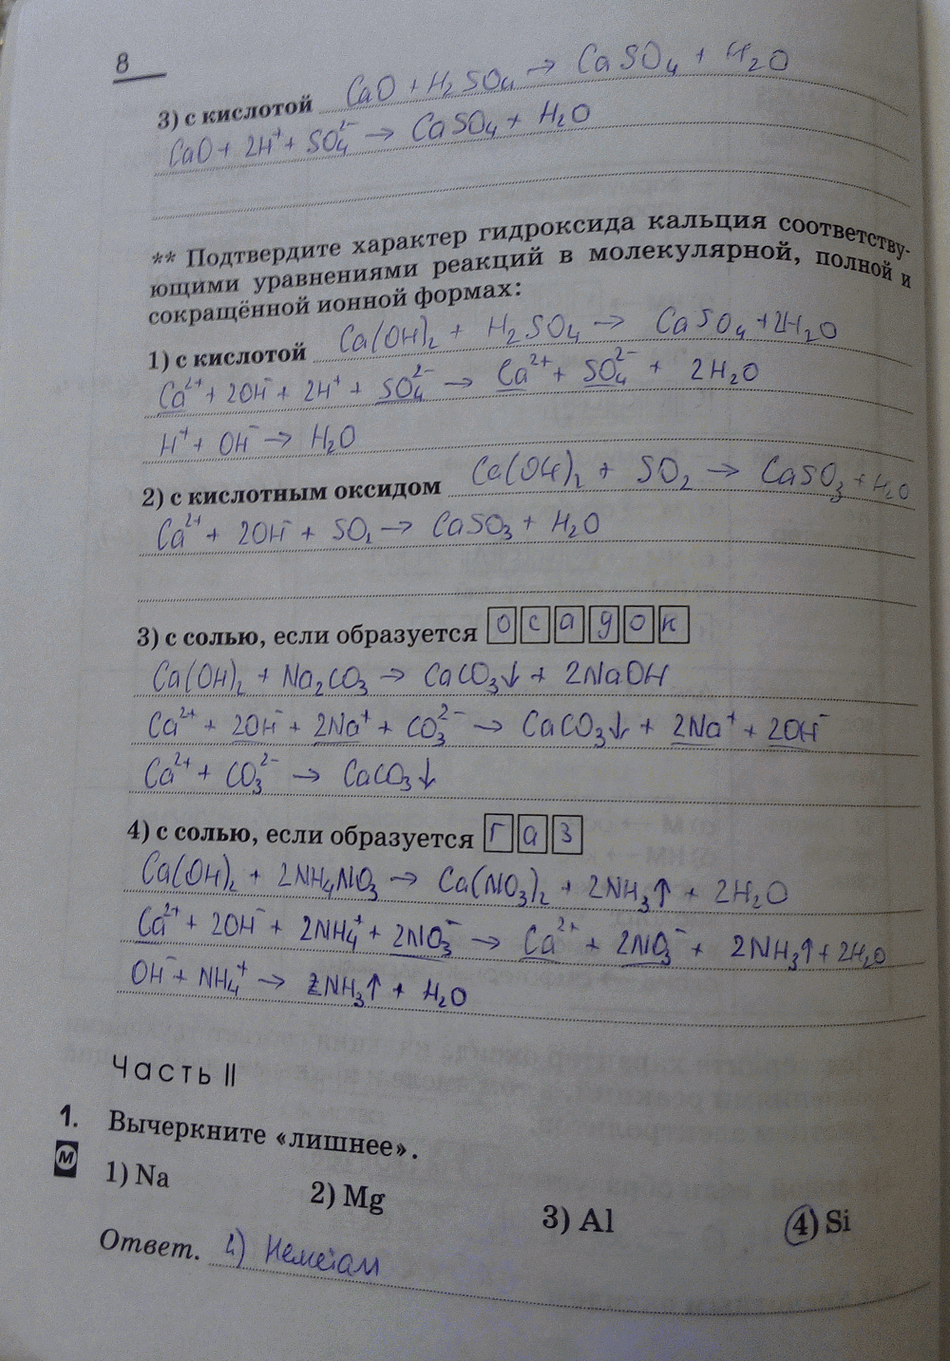 8
3) с кислотой CaO + H₂SO₄ → CaSO₄ + H₂O
CaO + 2H⁺ + SO₄²⁻ → CaSO₄ + H₂O
** Подтвердите характер гидроксида кальция соответству-
ющими уравнениями реакций в молекулярной, полной и
сокращённой ионной формах:
1) с кислотой Ca(OH)₂ + H₂SO₄ → CaSO₄ + 2H₂O
Ca²⁺ + 2OH⁻ + 2H⁺ + SO₄²⁻ → Ca²⁺ + SO₄²⁻ + 2H₂O
H⁺ + OH⁻ → H₂O
2) с кислотным оксидом Ca(OH)₂ + SO₂ → CaSO₃ + H₂O
Ca²⁺ + 2OH⁻ + SO₂ → CaSO₃ + H₂O
3) с солью, если образуется осадок
Ca(OH)₂ + Na₂CO₃ → CaCO₃↓ + 2NaOH
Ca²⁺ + 2OH⁻ + 2Na⁺ + CO₃²⁻ → CaCO₃↓ + 2Na⁺ + 2OH⁻
Ca²⁺ + CO₃²⁻ → CaCO₃↓
4) с солью, если образуется газ
Ca(OH)₂ + 2NH₄NO₃ → Ca(NO₃)₂ + 2NH₃↑ + 2H₂O
Ca²⁺ + 2OH⁻ + 2NH₄⁺ + 2NO₃⁻ → Ca²⁺ + 2NO₃⁻ + 2NH₃↑ + 2H₂O
OH⁻ + NH₄⁺ → NH₃↑ + H₂O
Часть II
1. Вычеркните «лишнее».
М
1) Na 2) Mg 3) Al 4) Si
Ответ. 4) Неметалл